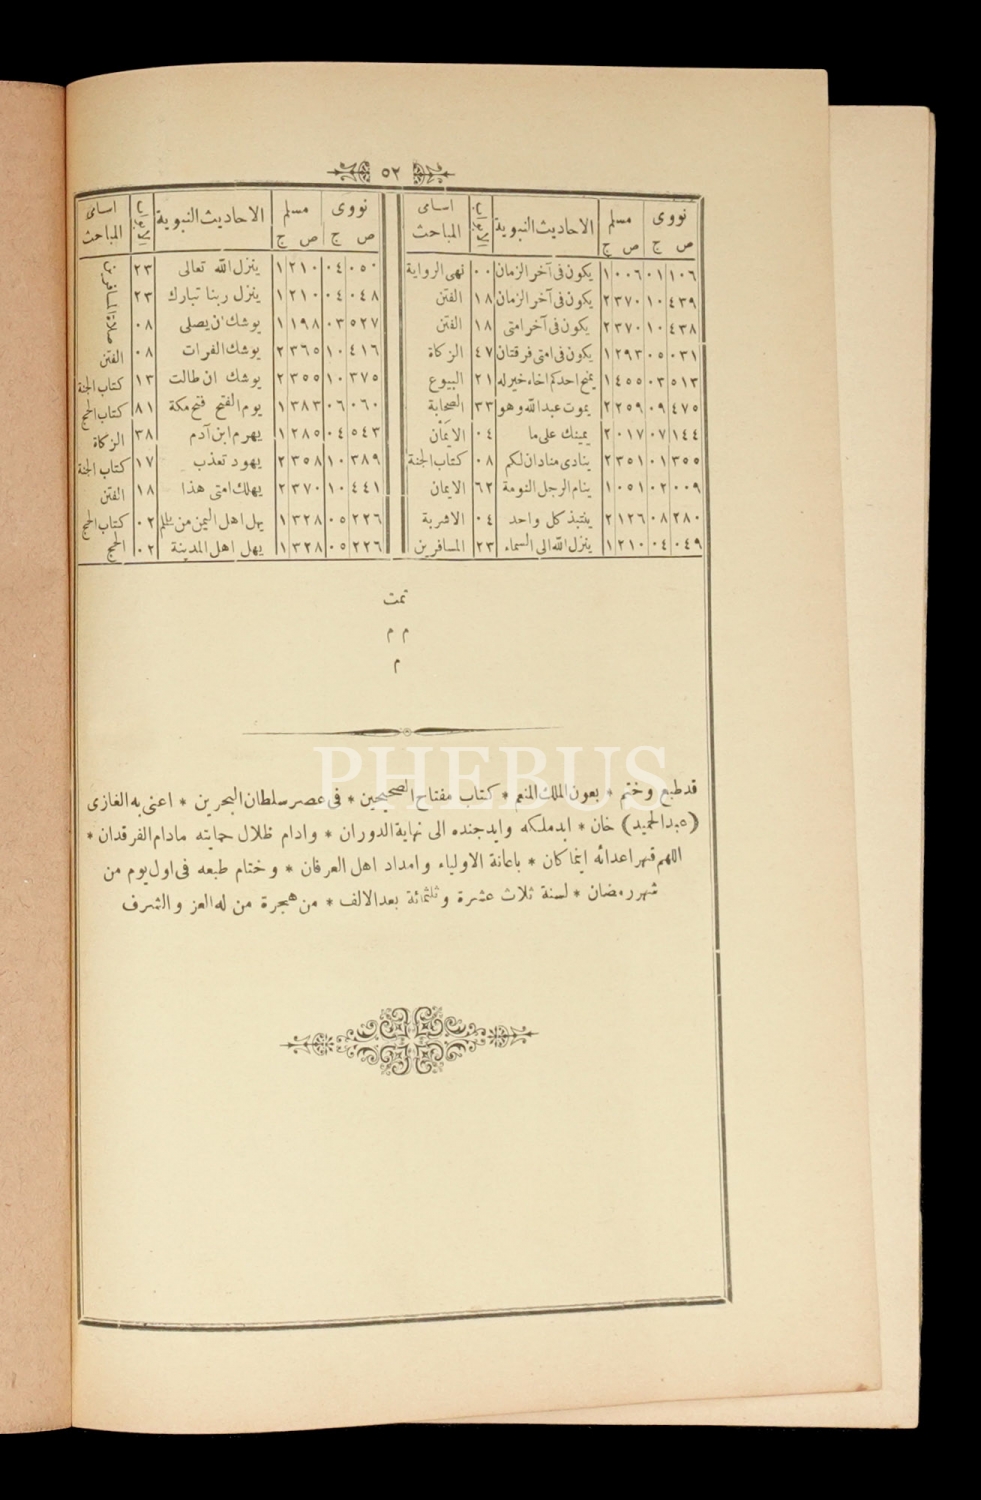 ٥٢
نووى مسلم الاحاديث النبوية الابواب اسامى المباحث
ص ج ص ج
١٠٦ ٠١ ٠٠٦ ١ يكون فى آخر الزمان ٠٠ نهى الرواية
٤٣٩ ١٠ ٣٧٠ ٢ يكون فى آخر الزمان ١٨ الفتن
٤٣٨ ١٠ ٣٧٠ ٢ يكون فى آخر امتى ١٨ الفتن
٠٣١ ٠٥ ٢٩٣ ١ يكون فى امتى فرقتان ٤٧ الزكاة
٥١٣ ٠٣ ٤٥٥ ١ يمنح احدكم اخاه خير له ٢١ البيوع
٤٧٥ ٠٩ ٢٥٩ ٢ يموت عبد الله وهو ٣٣ الصحابة
١٤٤ ٠٧ ٠١٧ ٢ يمينك على ما ٠٤ الايمان
٣٥٥ ٠١ ٣٥١ ٢ ينادى منادان لكم ٠٨ كتاب الجنة
٠٠٩ ٠٢ ٠٥١ ١ ينام الرجل النومة ٦٢ الايمان
٢٨٠ ٠٨ ١٢٦ ٢ ينتبذ كل واحد ٠٤ الاشربة
٠٤٩ ٠٤ ٢١٠ ١ ينزل الله الى السماء ٢٣ المسافرين
نووى مسلم الاحاديث النبوية الابواب اسامى المباحث
ص ج ص ج
٠٥٠ ٠٤ ٢١٠ ١ ينزل الله تعالى ٢٣ صلاة المسافرين
٠٤٨ ٠٤ ٢١٠ ١ ينزل ربنا تبارك ٢٣
٥٢٧ ٠٣ ١٩٨ ١ يوشك ان يصلى ٠٨
٤١٦ ١٠ ٣٦٥ ٢ يوشك الفرات ٠٨ الفتن
٣٧٥ ١٠ ٣٥٥ ٢ يوشك ان طالت ١٣ كتاب الجنة
٠٦٠ ٠٦ ٣٨٣ ١ يوم الفتح فتح مكة ٨١ كتاب الحج
٥٤٣ ٠٤ ٢٨٥ ١ يهرم ابن آدم ٣٨ الزكاة
٣٨٩ ١٠ ٣٥٨ ٢ يهود تعذب ١٧ كتاب الجنة
٤٤١ ١٠ ٣٧٠ ٢ يهلك امتى هذا ١٨ الفتن
٢٢٦ ٠٥ ٣٢٨ ١ يهل اهل اليمن من يلملم ٠٢ كتاب الحج
٢٢٦ ٠٥ ٣٢٨ ١ يهل اهل المدينة ٠٢ الحج
تمت
م م
م
قد طبع وختم * بعون الملك المنعم * كتاب مفتاح الصحيحين * فى عصر سلطان البحرين * اعنى به الغازى
(عبد الحميد) خان * ايد ملكه وايد جنده الى نهاية الدوران * وادام ظلال حمايته مادام الفرقدان *
اللهم قهر اعدائه اينما كان * باعانة الاولياء وامداد اهل العرفان * وختام طبعه فى اول يوم من
شهر رمضان * لسنة ثلاث عشرة وثلثمائة بعد الالف * من هجرة من له العز والشرف
PHEBUS